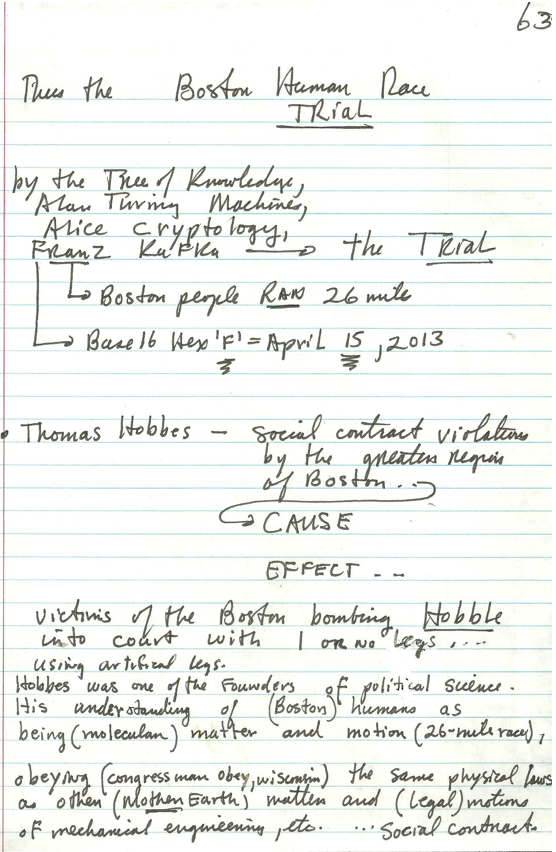 63
Thus the Boston Human Race
TRiaL
by the Tree of Knowledge,
Alan Turing Machines,
Alice Cryptology,
FRanZ KaFKa → the TRiaL
Boston people RAN 26 mile
Base 16 Hex 'F' = April 15, 2013
• Thomas Hobbes — social contract violation
by the greater region
of Boston...
CAUSE
EFFECT --
victims of the Boston bombing Hobble
into court with 1 OR NO legs ....
using artifical legs.
Hobbes was one of the Founders of political science.
His understanding of (Boston) humans as
being (molecular) matter and motion (26-mile race),
obeying (congressman obey, wisconsin) the same physical laws
as other (Mother Earth) matter and (legal) motions
of mechanical engineering, etc. ... Social contract.